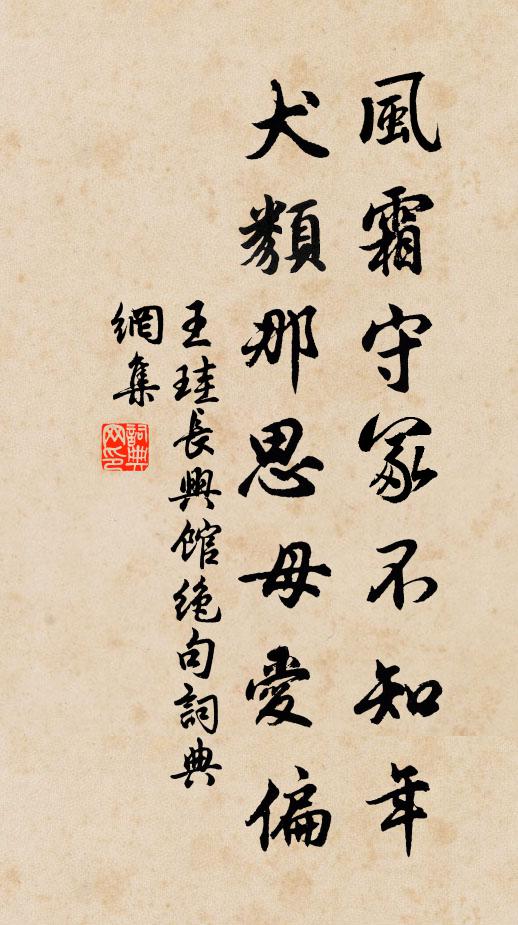 風霜守冢不知年
犬類那思母愛偏
王珪長興館絶句詞典
網集
詞典網印